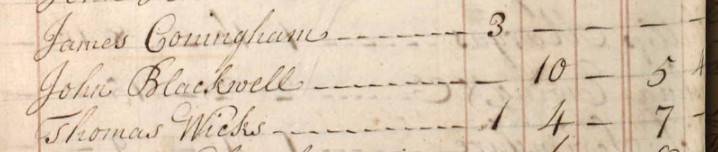 James Coningham 3 — — —
John Blackwell 10 — 5
Thomas Wicks 1 4 — 7